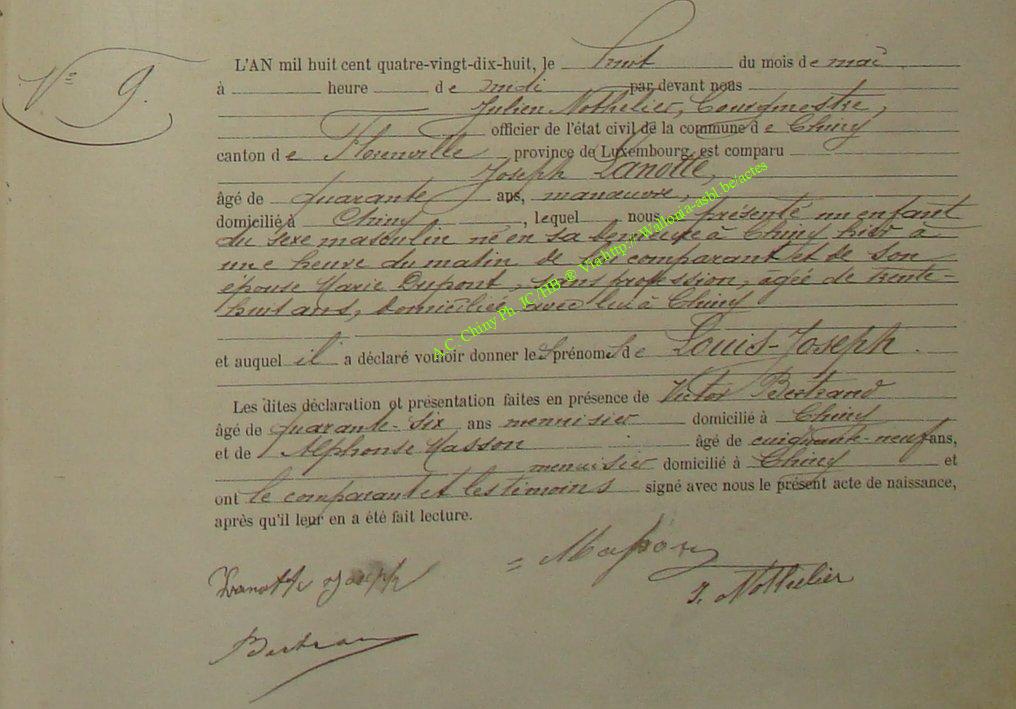 Nº 9.
L'AN mil huit cent quatre-vingt-dix-huit, le huit du mois de mai
à heure de midi par devant nous
Julien Nothelier, Bourgmestre,
officier de l'état civil de la commune de Chiny
canton de Florenville province de Luxembourg, est comparu
Joseph Lanotte,
âgé de quarante ans, manœuvre,
domicilié à Chiny, lequel nous présenté un enfant
du sexe masculin né en sa demeure à Chiny hier à
une heure du matin de comparant et de son
épouse Marie Dupont, sans profession, âgée de trente-
huit ans, domiciliée avec lui à Chiny
et auquel il a déclaré vouloir donner les prénoms de Louis-Joseph.
Les dites déclaration et présentation faites en présence de Victor Bertrand
âgé de quarante-six ans menuisier domicilié à Chiny
et de Alphonse Masson âgé de cinquante-neuf ans,
menuisier domicilié à Chiny et
ont le comparant et les témoins signé avec nous le présent acte de naissance,
après qu'il leur en a été fait lecture.
Lanotte Joseph
Masson
J. Nothelier
Bertrand
A.C. Chiny Ph. JC/HB ® Via http://Wallonia-asbl.be/actes